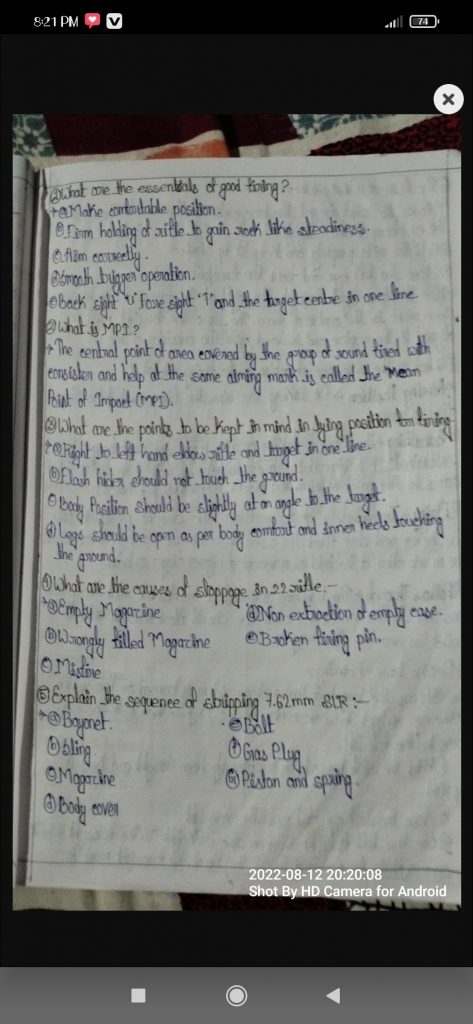 8:21 PM
74
① What are the essentials of good firing?
→ ⓐ Make comfortable position.
ⓑ Firm holding of rifle to gain rock like steadiness.
ⓒ Aim correctly.
ⓓ Smooth trigger operation.
ⓔ Back sight "U" Fore sight "I" and the target centre in one line
② What is MPI?
→ The central point of area covered by the group of round fired with
consisten and help at the same aiming mark is called the Mean
Point of Impact (MPI).
③ What are the points to be kept in mind in lying position for firing
→ ⓐ Right to left hand elbow rifle and target in one line.
ⓑ Flash hider should not touch the ground.
ⓒ Body Position should be slightly at an angle to the target.
ⓓ Legs should be open as per body comfort and inner heels touching
the ground.
④ What are the causes of stoppage in 22 rifle.-
→ ⓐ Empty Magazine
ⓑ Wrongly filled Magazine
ⓒ Misfire
ⓓ Non extraction of empty case.
ⓔ Broken firing pin.
⑤ Explain the sequence of stripping 7.62mm SLR :-
→ ⓐ Bayonet.
ⓑ Sling
ⓒ Magazine
ⓓ Body cover
ⓔ Bolt
ⓕ Gas Plug
ⓖ Piston and spring.
2022-08-12 20:20:08
Shot By HD Camera for Android